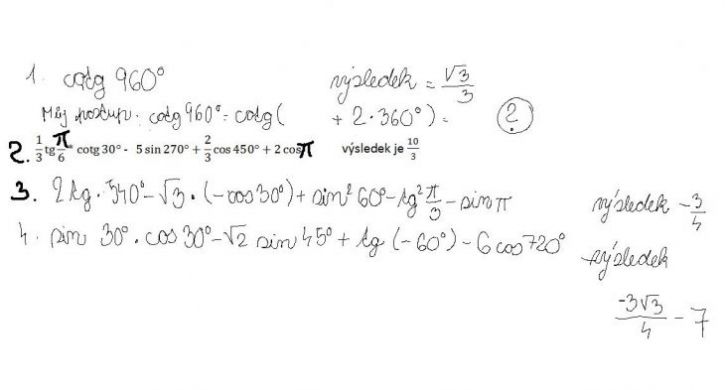 1. cotg 960° výsledek = √3/3
Můj postup: cotg 960° = cotg( + 2·360°) = ?
2. 1/3 tg π/6 cotg 30° - 5 sin 270° + 2/3 cos 450° + 2 cos π výsledek je 10/3
3. 2tg·540° - √3·(-cos30°) + sin²60° - tg² π/3 - sin π výsledek -3/4
4. sin 30°·cos 30° - √2 sin 45° + tg (-60°) - 6 cos 720° výsledek
-3√3/4 - 7